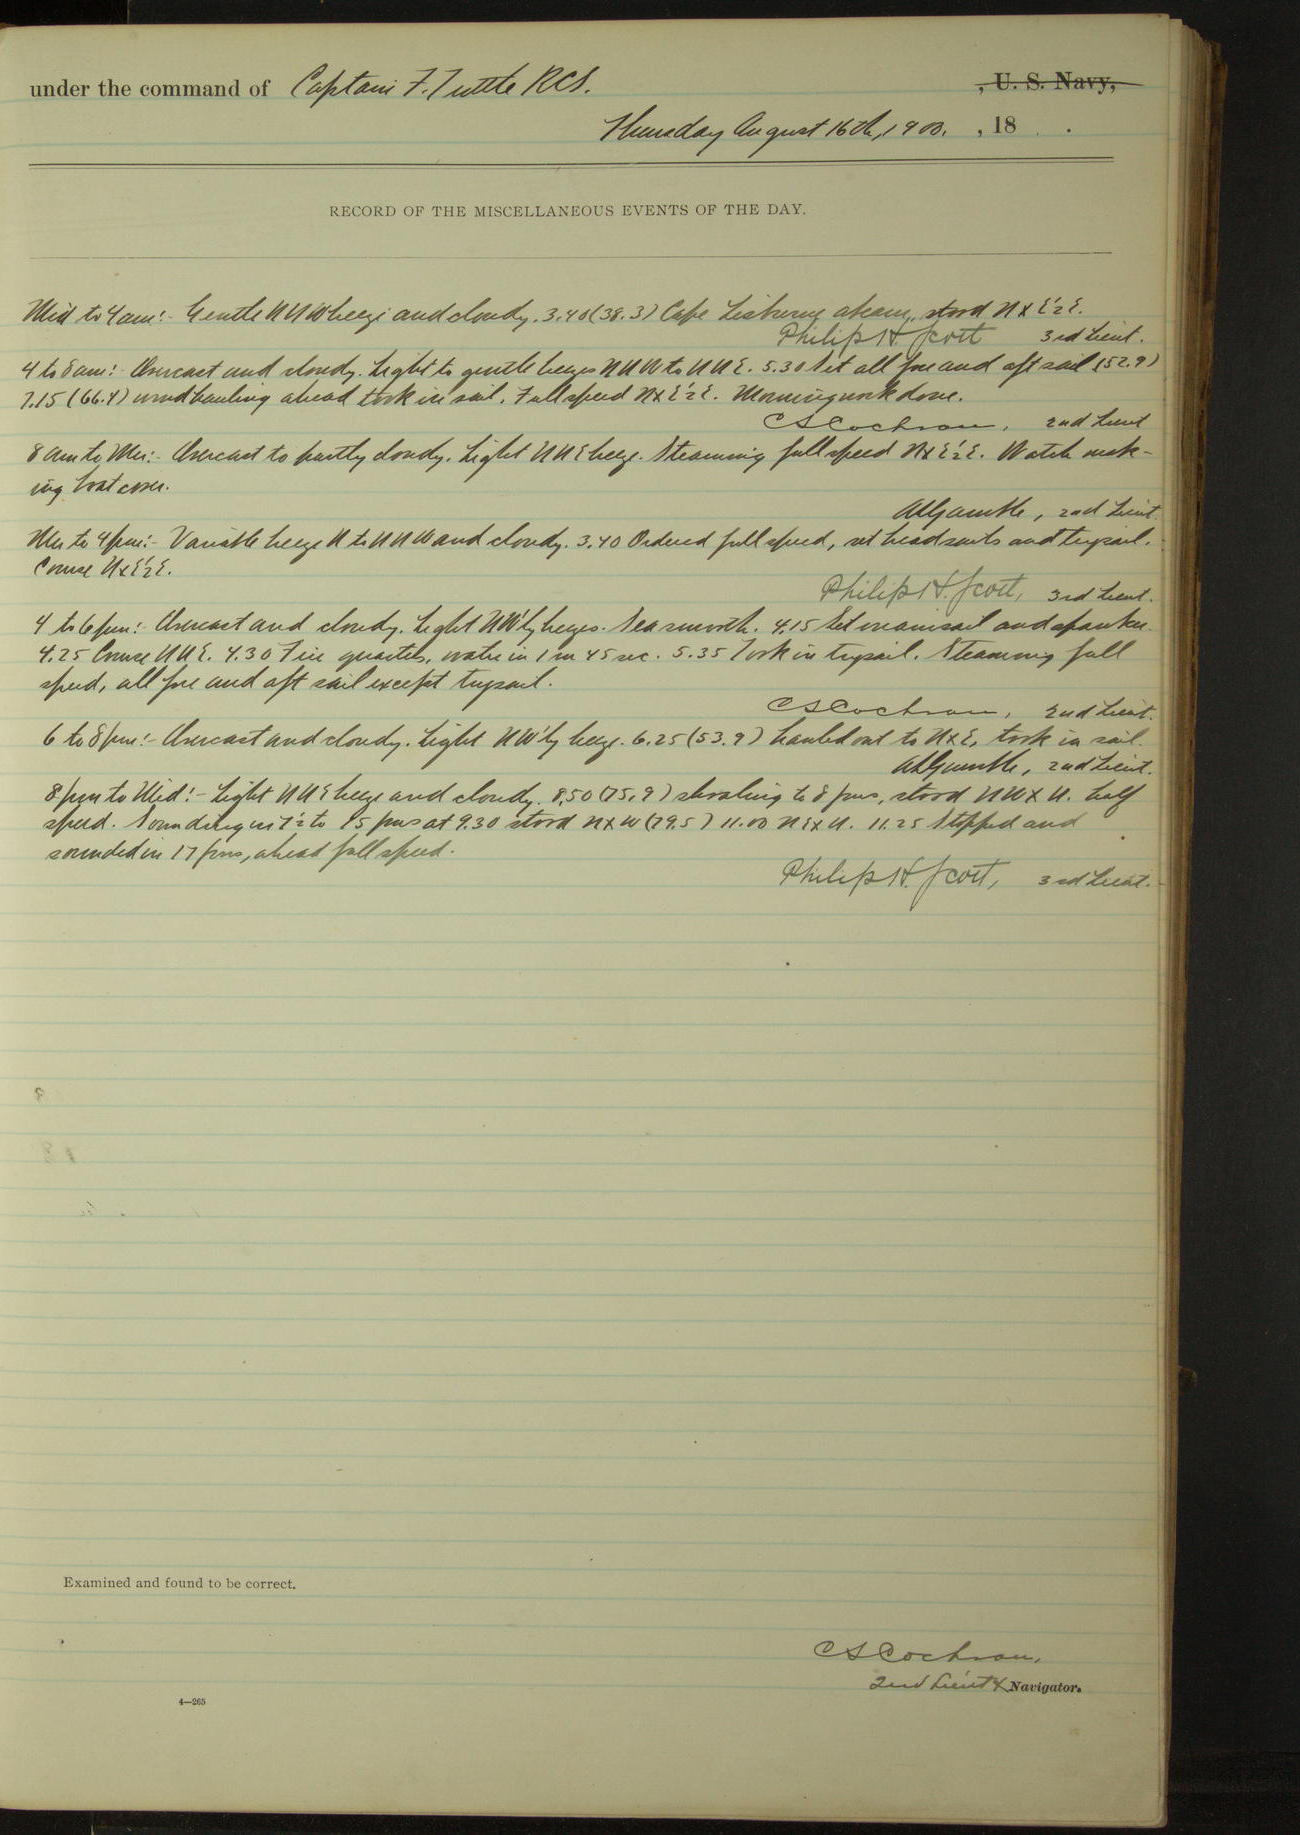 under the command of Captain F. Tuttle RCS. , U. S. Navy,
Thursday August 16th, 1900. , 18 .
RECORD OF THE MISCELLANEOUS EVENTS OF THE DAY.
Mid to 4 am:- Gentle NNW breeze and cloudy. 3.40 (38.3) Cape Lisburne abeam, stood NxE½E.
Philip H. Scott 3rd Lieut.
4 to 8 am:- Overcast and cloudy. Light to gentle breezes NNW to NNE. 5.30 Set all fore and aft sail (52.9)
7.15 (66.4) wind hauling ahead took in sail. Full speed NxE½E. Morning work done.
CSCochran, 2nd Lieut
8 am to Mer:- Overcast to partly cloudy. Light NNE breeze. Steaming full speed NxE½E. Watch mak-
ing boat cover.
ALGamble, 2nd Lieut.
Mer to 4 pm:- Variable breeze N to NNW and cloudy. 3.40 Ordered full speed, set headsails and trysail.
Course NxE½E.
Philip H. Scott, 3rd Lieut.
4 to 6 pm:- Overcast and cloudy. Light NW'ly breezes. Sea smooth. 4.15 Set mainsail and spanker.
4.25 Course NNE. 4.30 Fire quarters, water in 1 m 45 sec. 5.35 Took in trysail. Steaming full
speed, all fore and aft sail except trysail.
CSCochran, 2nd Lieut.
6 to 8 pm:- Overcast and cloudy. Light NW'ly breeze. 6.25 (53.9) hauled out to NxE, took in sail.
ALGamble, 2nd Lieut.
8 pm to Mid:- Light NNE breeze and cloudy. 8.50 (75.9) shoaling to 8 fms, stood NWxN. half
speed. Sounding in 7½ to 15 fms at 9.30 stood NxW (79.5) 11.00 NExN. 11.25 Stopped and
sounded in 17 fms, ahead full speed.
Philip H. Scott, 3rd Lieut.
Examined and found to be correct.
CSCochran,
2nd Lieut & Navigator.
4—265